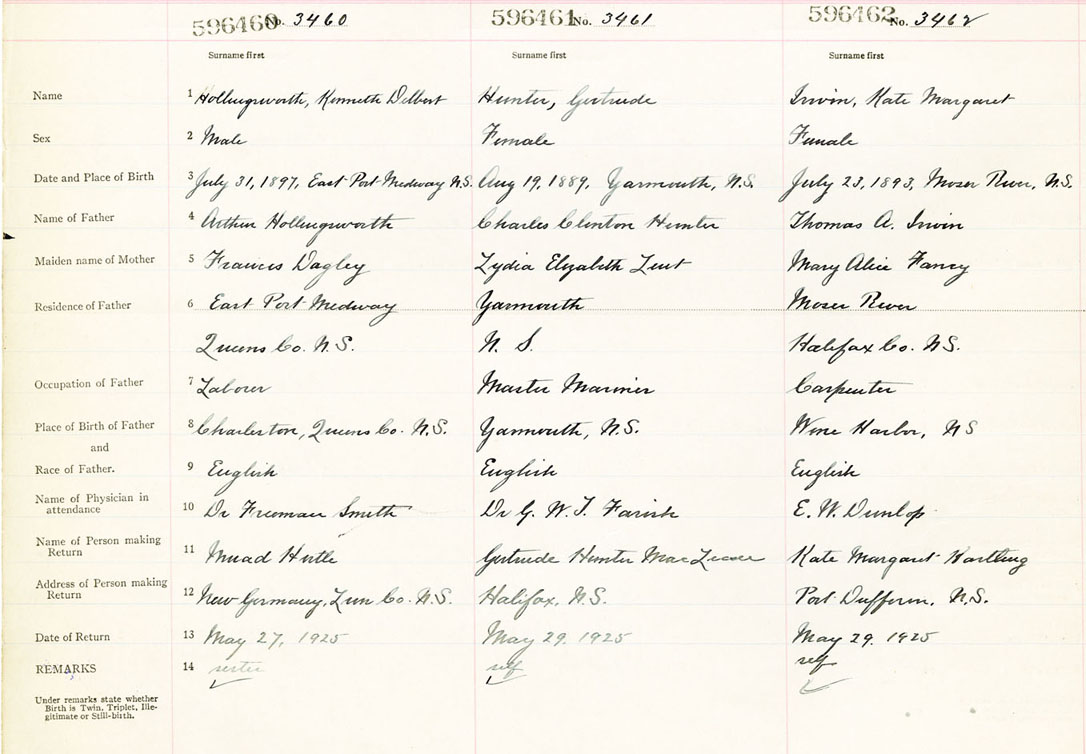 596460 No. 3460 596461 No. 3461 596462 No. 3462
Surname first Surname first Surname first
Name 1 Hollingsworth, Kenneth Delbert Hunter, Gertrude Irwin, Kate Margaret
Sex 2 Male Female Female
Date and Place of Birth 3 July 31, 1897, East Port Medway N.S. Aug 19, 1889, Yarmouth, N.S. July 23, 1893, Moser River, N.S.
Name of Father 4 Arthur Hollingsworth Charles Clinton Hunter Thomas A. Irwin
Maiden name of Mother 5 Francis Dagley Lydia Elizabeth Mary Alice Fancy
Residence of Father 6 East Port Medway Yarmouth Moser River
Queens Co. N.S. N. S. Halifax Co. N.S.
Occupation of Father 7 Laborer Master Mariner Carpenter
Place of Birth of Father 8 Charleston, Queens Co. N.S. Yarmouth, N.S. Wine Harbor, N S
and
Race of Father. 9 English English English
Name of Physician in
attendance 10 Dr Freeman Smith Dr G. W. T. Farish E. W. Dunlop
Name of Person making
Return 11 Hirtle Gertrude Hunter Kate Margaret Hartling
Address of Person making
Return 12 New Germany, Lun Co. N.S. Halifax, N.S. Port Dufferin, N.S.
Date of Return 13 May 27, 1925 May 29. 1925 May 29. 1925
REMARKS 14 sister self self
Under remarks state whether
Birth is Twin, Triplet, Ille-
gitimate or Still-birth.